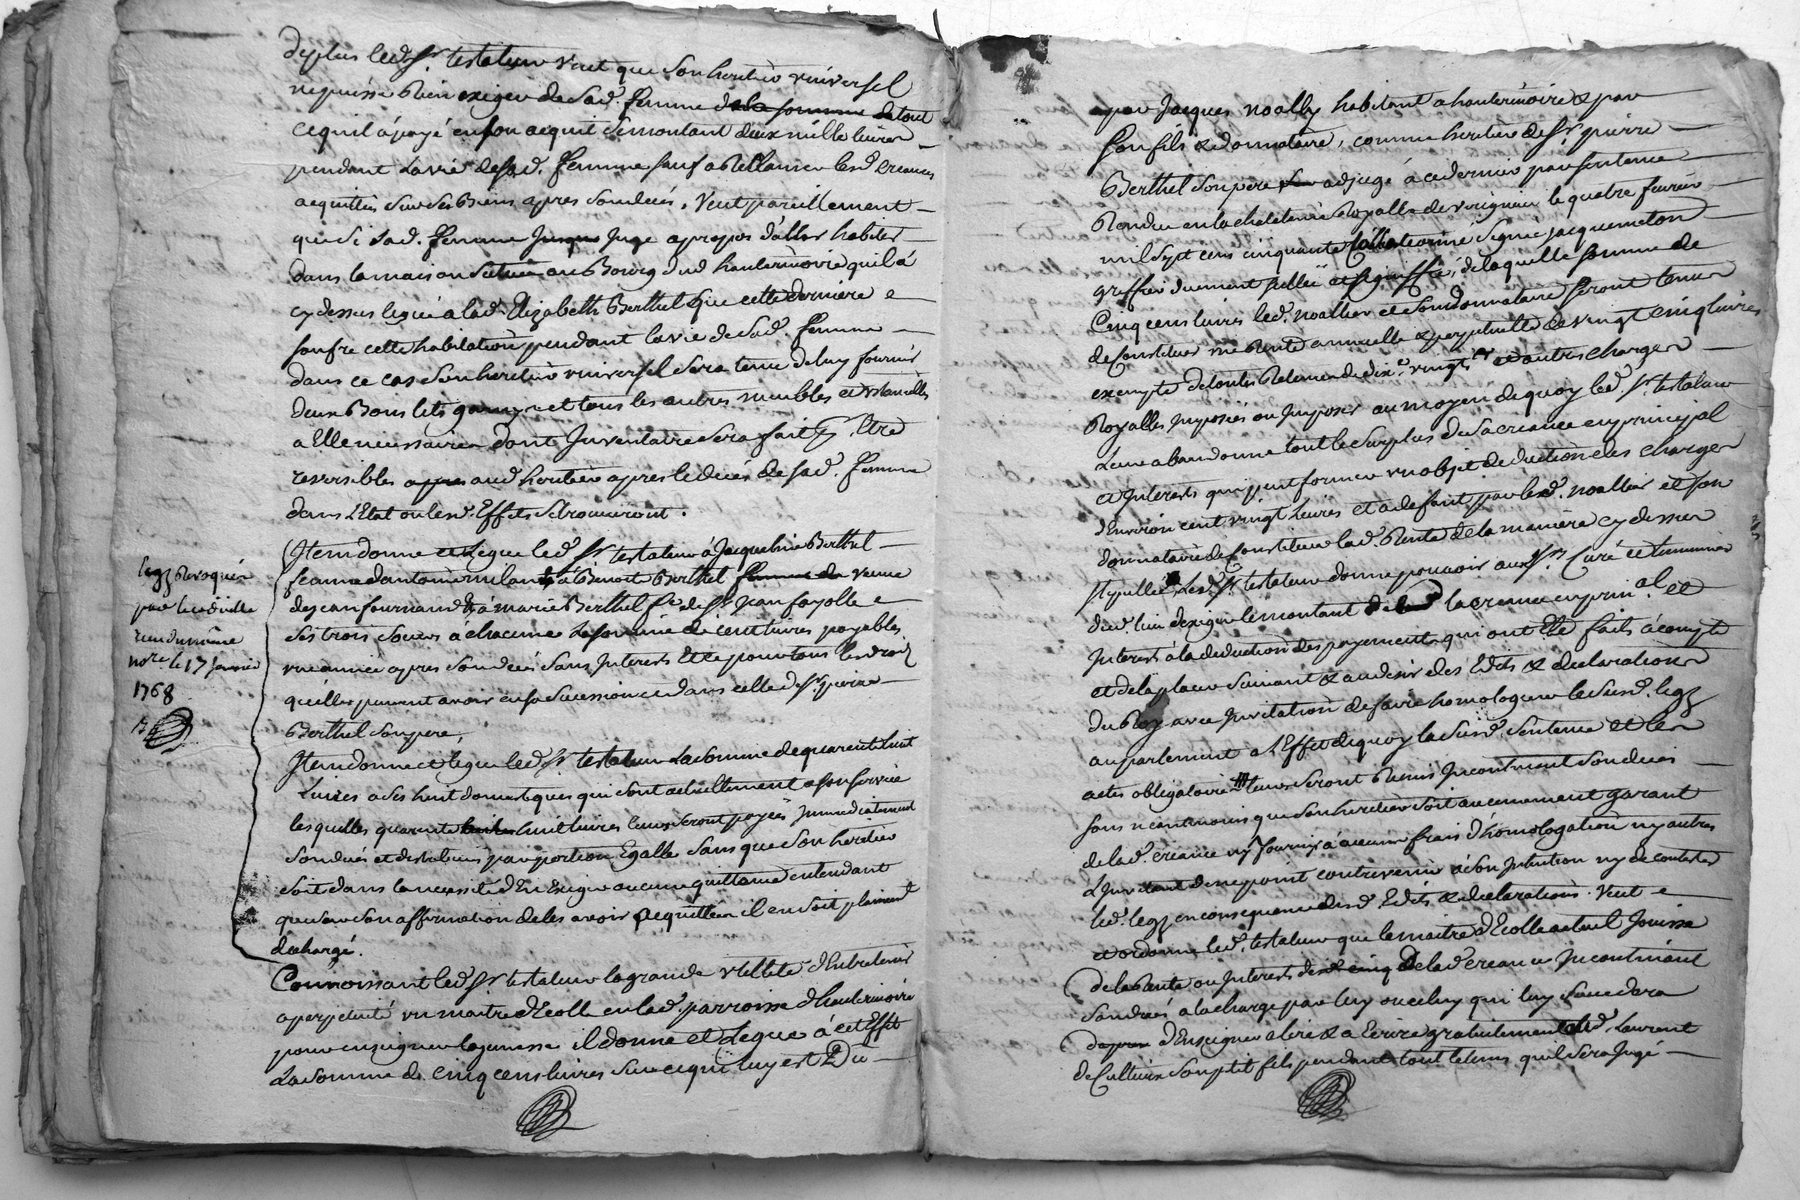 deplus led. Sr. testateur veut que son heritier universel
ne puisse Rien exiger de sad. femme de la somme de tout
ce qu'il a payé en son acquit se montant deux mille livres
pendant la vie de sad. femme sauf a Reclamer lesd. creances
acquittées sur ses Biens apres son decés, veut pareillement
que si sad. femme jusque juge apropos d'aller habiter
dans la maison située au Bourg dud hauterivoire qu'il a
cy dessus legué a lad. Elizabeth Berthel que cette derniere
soufre cette habitation pendant la vie de sad. femme
dans ce cas son heritier universel sera tenu de luy fournir
deux Bons lits garnys et tous les autres meubles et ustancilles
a Elle necessaires dont Inventaire sera fait pr. Etre
reversibles apres aud heritier apres le decés de sad. femme
dans l'Etat ou lesd. Effets se trouveront.
Item donne et Legue led. Sr. testateur à Jacqueline Berthel
femme d'antoine milan & à Benoit Berthel femme de veuve
de jean fournand & à marie Berthel fe. de Sr. Jean fayolle
ses trois soeurs à chacune La somme de cent livres payables
une année apres son decés sans Interests Et ce pour tous les droits
qu'elles peuvent avoir en sa succession et dans celle de Sr. pierre
Berthel son pere,
legs Revoqués
par le codicille
reçu du même
nore. le 17 janvier
1768
Item donne et legue led. Sr. testateur La somme de quarente huit
Livres a ses huit domestiques qui sont actuellement a son service
lesquelles quarente huit livres leurs seront payées Immediatement
son decés et distribuées par portion Egalle sans que son heritier
soit dans la necessité d'En Exiger aucune quittance entendant
que sur son affirmation de les avoir acquittées il en soit plainemt
dechargé.
Connoissant led. Sr. testateur la grande utillité d'Entretenir
a perpetuité un maitre d'Ecolle en lad. parroisse d'hauterivoire
pour enseigner la jeunesse il donne et Legue à cet Effet
La somme de cinq cens livres sur ce qui luy est Dû
par Jacques noally habitant a hauterivoire & par
son fils & donnataire, comme heritier de Sr. pierre
Berthel son pere adjugé à ce dernier par sentence
Rendue en la chatelenie Royalle de le quatre fevrier
mil sept cens cinquante signé jacquemeton
greffier duement scellée et signiffiée, de laquelle somme de
Cinq cens livres led. noallier et son donnataire seront tenus
de constituer une Rente annuelle & perpetuelle de vingt cinq livres
exempte de toutes Retenues de dixe. vingte. et autres charges
Royalles Imposées ou Imposer au moyen de quoy led. Sr. testateur
Leur abandonne tout le surplus de sa creance en principal
et Interests qui peut former un objet deduction des charges
d'Environ cent vingt livres et a defaut par lesd. noallier et son
donnataire de Constituer lad. Rente de la maniere cy dessus
stipullée, Led. Sr. testateur donne pouvoir aux Srs. Curé et Luminier
dud. lieu d'exiger le montant de lad. la creance en prin.al et
Interests à la deduction des payements qui ont Eté faits à compte
et de la placer suivant & au desir des Edits & declarations
du Roy avec Invitation de faire homologuer le susd. legs
au parlement a L'Effet de quoy la susd. sentence et les
actes obligatoires leurs seront Remis Incontinent son decés
sans neantmoins que son heritier soit aucunement garant
de lad. creance ny fournir à aucuns frais d'homologation ny autres
L'Invitant de ne point contrevenir à son Intention ny de contester
led. legs en consequence desd. Edits & declarations. Veut
et ordonne led. testateur que le maitre d'Ecolle actuel Jouisse
de la Rente ou Interests desd cinq de lad creance Incontinant
son decés a la charge par luy ou celuy qui luy succedera
d'Enseigner a lire & a Ecrire gratuitement led. Laurent
de Culture son ptit fils pendant tout le tems qu'il sera Jugé